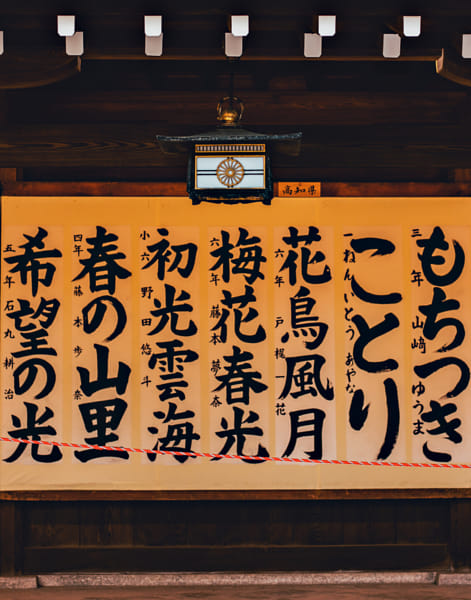 高知県
もちつき
三年 山﨑 ゆうま
ことり
一ねん いとう あやな
花鳥風月
六年 戸梶 一花
梅花春光
六年 藤本 夢奈
初光雲海
小六 野田 悠斗
春の山里
四年 藤本 歩奈
希望の光
五年 石丸 耕治